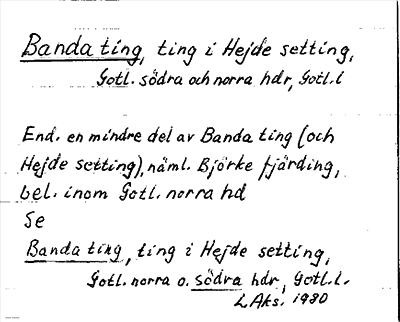 Banda ting, ting i Hejde setting,
Gotl. södra och norra hdr, Gotl. l
End. en mindre del av Banda ting (och
Hejde setting), näml. Björke fjärding,
bel. inom Gotl. norra hd
Se
Banda ting, ting i Hejde setting,
Gotl. norra o. södra hdr, Gotl. l.
L Aks. 1980